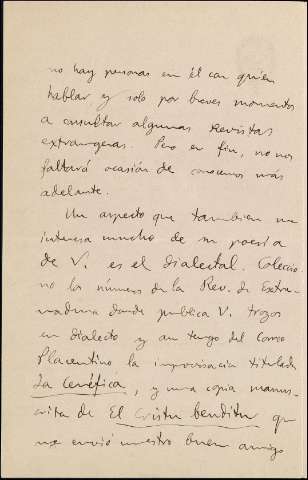 no hay personas en él con quien
hablar, y solo por breves momentos
a consultar algunas Revistas
extrangeras. Pero en fin, no nos
faltará ocasión de conocernos más
adelante.
Un aspecto que tambien me
interesa mucho de su poesia
de V. es el dialectal. Coleccio-
no los números de la Rev. de Extre-
madura donde publica V. trozos
en dialecto y aun tengo del Correo
Placentino la improvisacion titulada
La Cenéfica, y una copia manus-
crita de El Cristu benditu que
me envió nuestro buen amigo